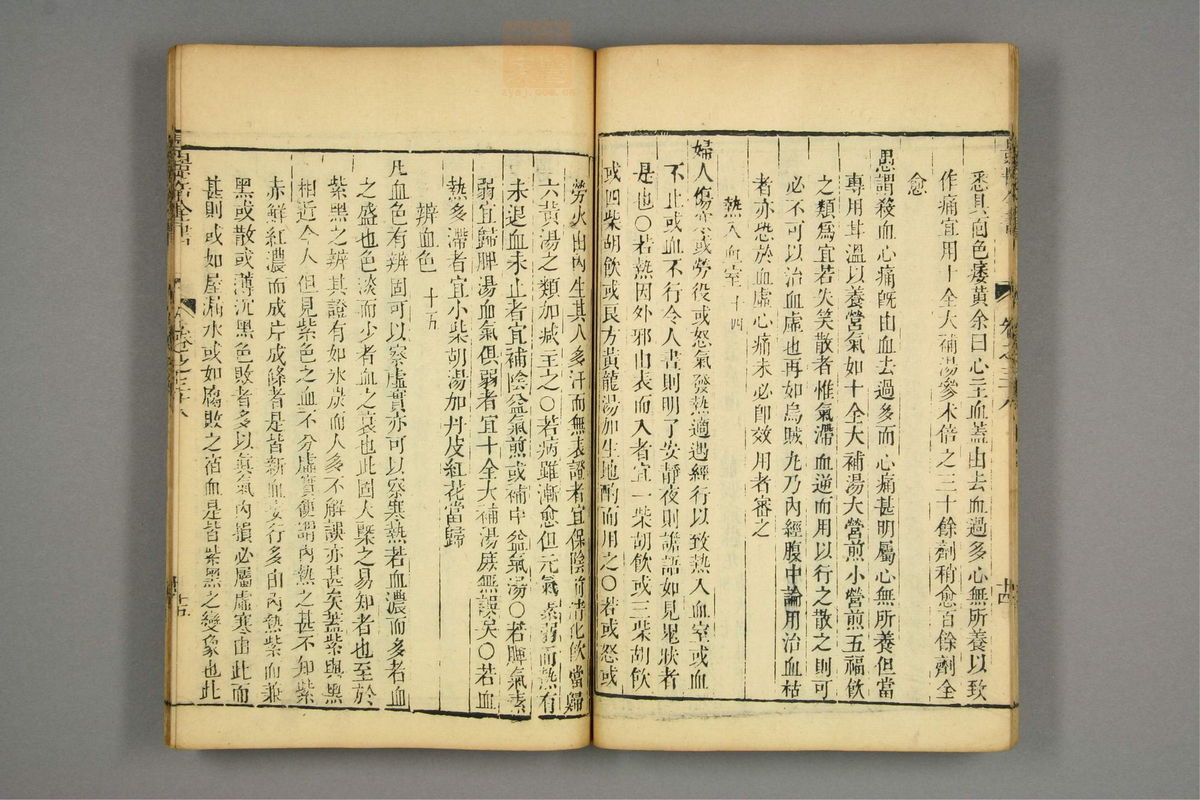 悉具面色痿黃余曰心主血蓋由去血過多心無所養以致
作痛宜用十全大補湯參朮倍之三十餘劑稍愈百餘劑全
愈
愚謂殺血心痛旣由血去過多而心痛甚明屬心無所養但當
專用甘溫以養營氣如十全大補湯大營煎小營煎五福飲
之類爲宜若失笑散者惟氣滯血逆而用以行之散之則可
必不可以治血虛也再如烏賊丸乃內經腹中論用治血枯
者亦恐於血虛心痛未必卽效用者審之
熱入血室 十四
婦人傷寒或勞役或怒氣發熱適遇經行以致熱入血室或血
不止或血不行令人晝則明了安靜夜則譫語如見鬼狀者
是也○若熱因外邪由表而入者宜一柴胡飲或三柴胡飲
或四柴胡飲或良方黃龍湯加生地酌而用之○若或怒或
勞火由內生其人多汗而無表證者宜保陰煎清化飲當歸
六黃湯之類加減主之○若病雖漸愈但元氣素弱而熱有
未退血未止者宜補陰益氣煎或補中益氣湯○若脾氣素
弱宜歸脾湯血氣俱弱者宜十全大補湯庶無誤矣○若血
熱多滯者宜小柴胡湯加丹皮紅花當歸
辨血色 十五
凡血色有辨固可以察虛實亦可以察寒熱若血濃而多者血
之盛也色淡而少者血之衰也此固大槩之易知者也至於
紫黑之辨其證有如氷炭而人多不解誤亦甚矣蓋紫與黑
相近今人但見紫色之血不分虛實便謂內熱之甚不知紫
赤鮮紅濃而成片成條者是皆新血妄行多由內熱紫而兼
黑或散或薄沉黑色敗者多以眞氣內損必屬虛寒由此而
甚則或如屋漏水或如腐敗之宿血是皆紫黑之變象也此
卷之三十八